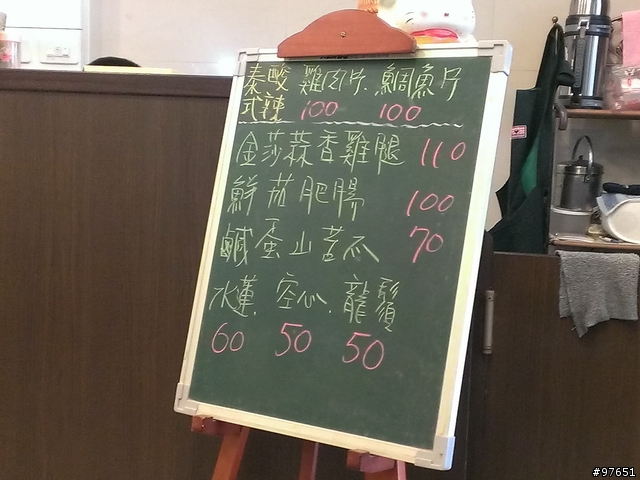 泰式 酸辣 雞肉片 鯛魚片
100 100
金莎蒜香雞腿 110
鮮茄肥腸 100
鹹蛋山苦瓜 70
水蓮. 空心. 龍鬚
60 50 50
#97651